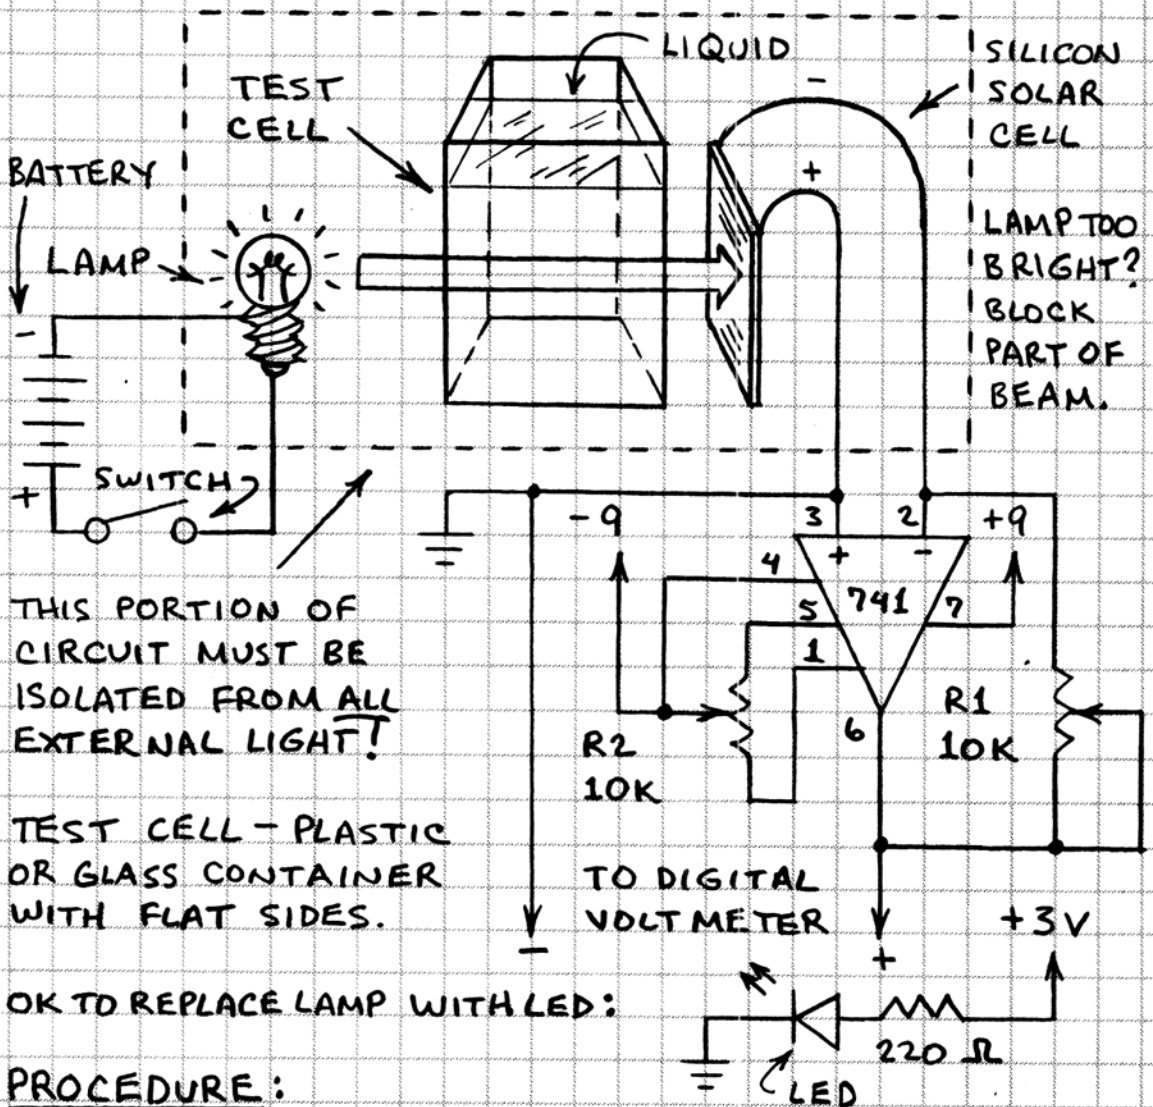 LIQUID
TEST
CELL
SILICON
SOLAR
CELL
BATTERY
LAMP
-
-
+
LAMP TOO
BRIGHT?
BLOCK
PART OF
BEAM.
SWITCH
+
-9
3
2
+9
+
-
4
741
7
5
1
6
THIS PORTION OF
CIRCUIT MUST BE
ISOLATED FROM ALL
EXTERNAL LIGHT!
R2
10K
R1
10K
TEST CELL - PLASTIC
OR GLASS CONTAINER
WITH FLAT SIDES.
TO DIGITAL
VOLTMETER
-
+
+3V
OK TO REPLACE LAMP WITH LED:
220 Ω
LED
PROCEDURE: